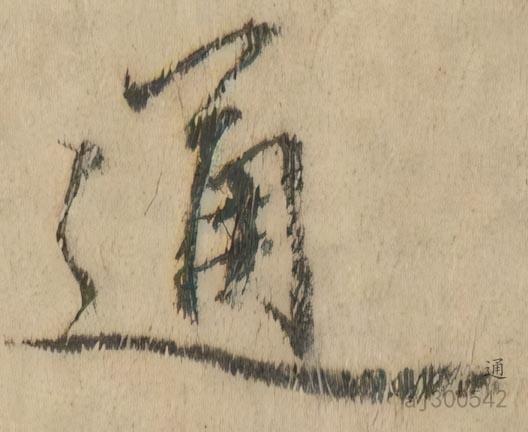 通
通
a/j300542